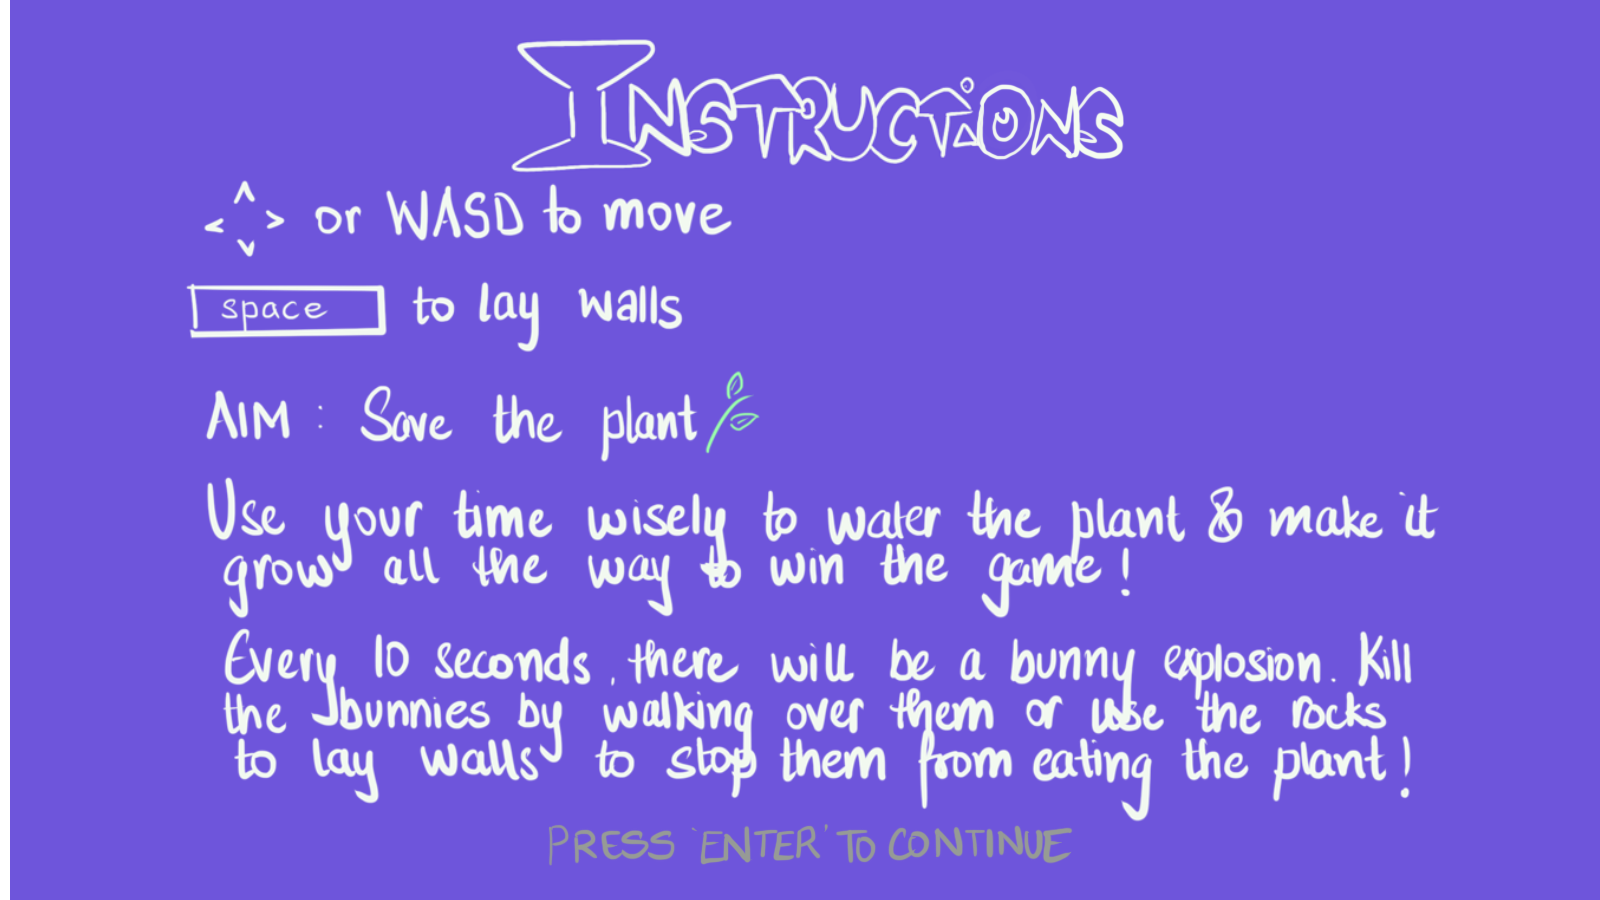 INSTRUCTIONS
^ < > v or WASD to move
space to lay walls
AIM : Save the plant
Use your time wisely to water the plant & make it
grow all the way to win the game!
Every 10 seconds, there will be a bunny explosion. Kill
the bunnies by walking over them or use the rocks
to lay walls to stop them from eating the plant!
PRESS 'ENTER' TO CONTINUE